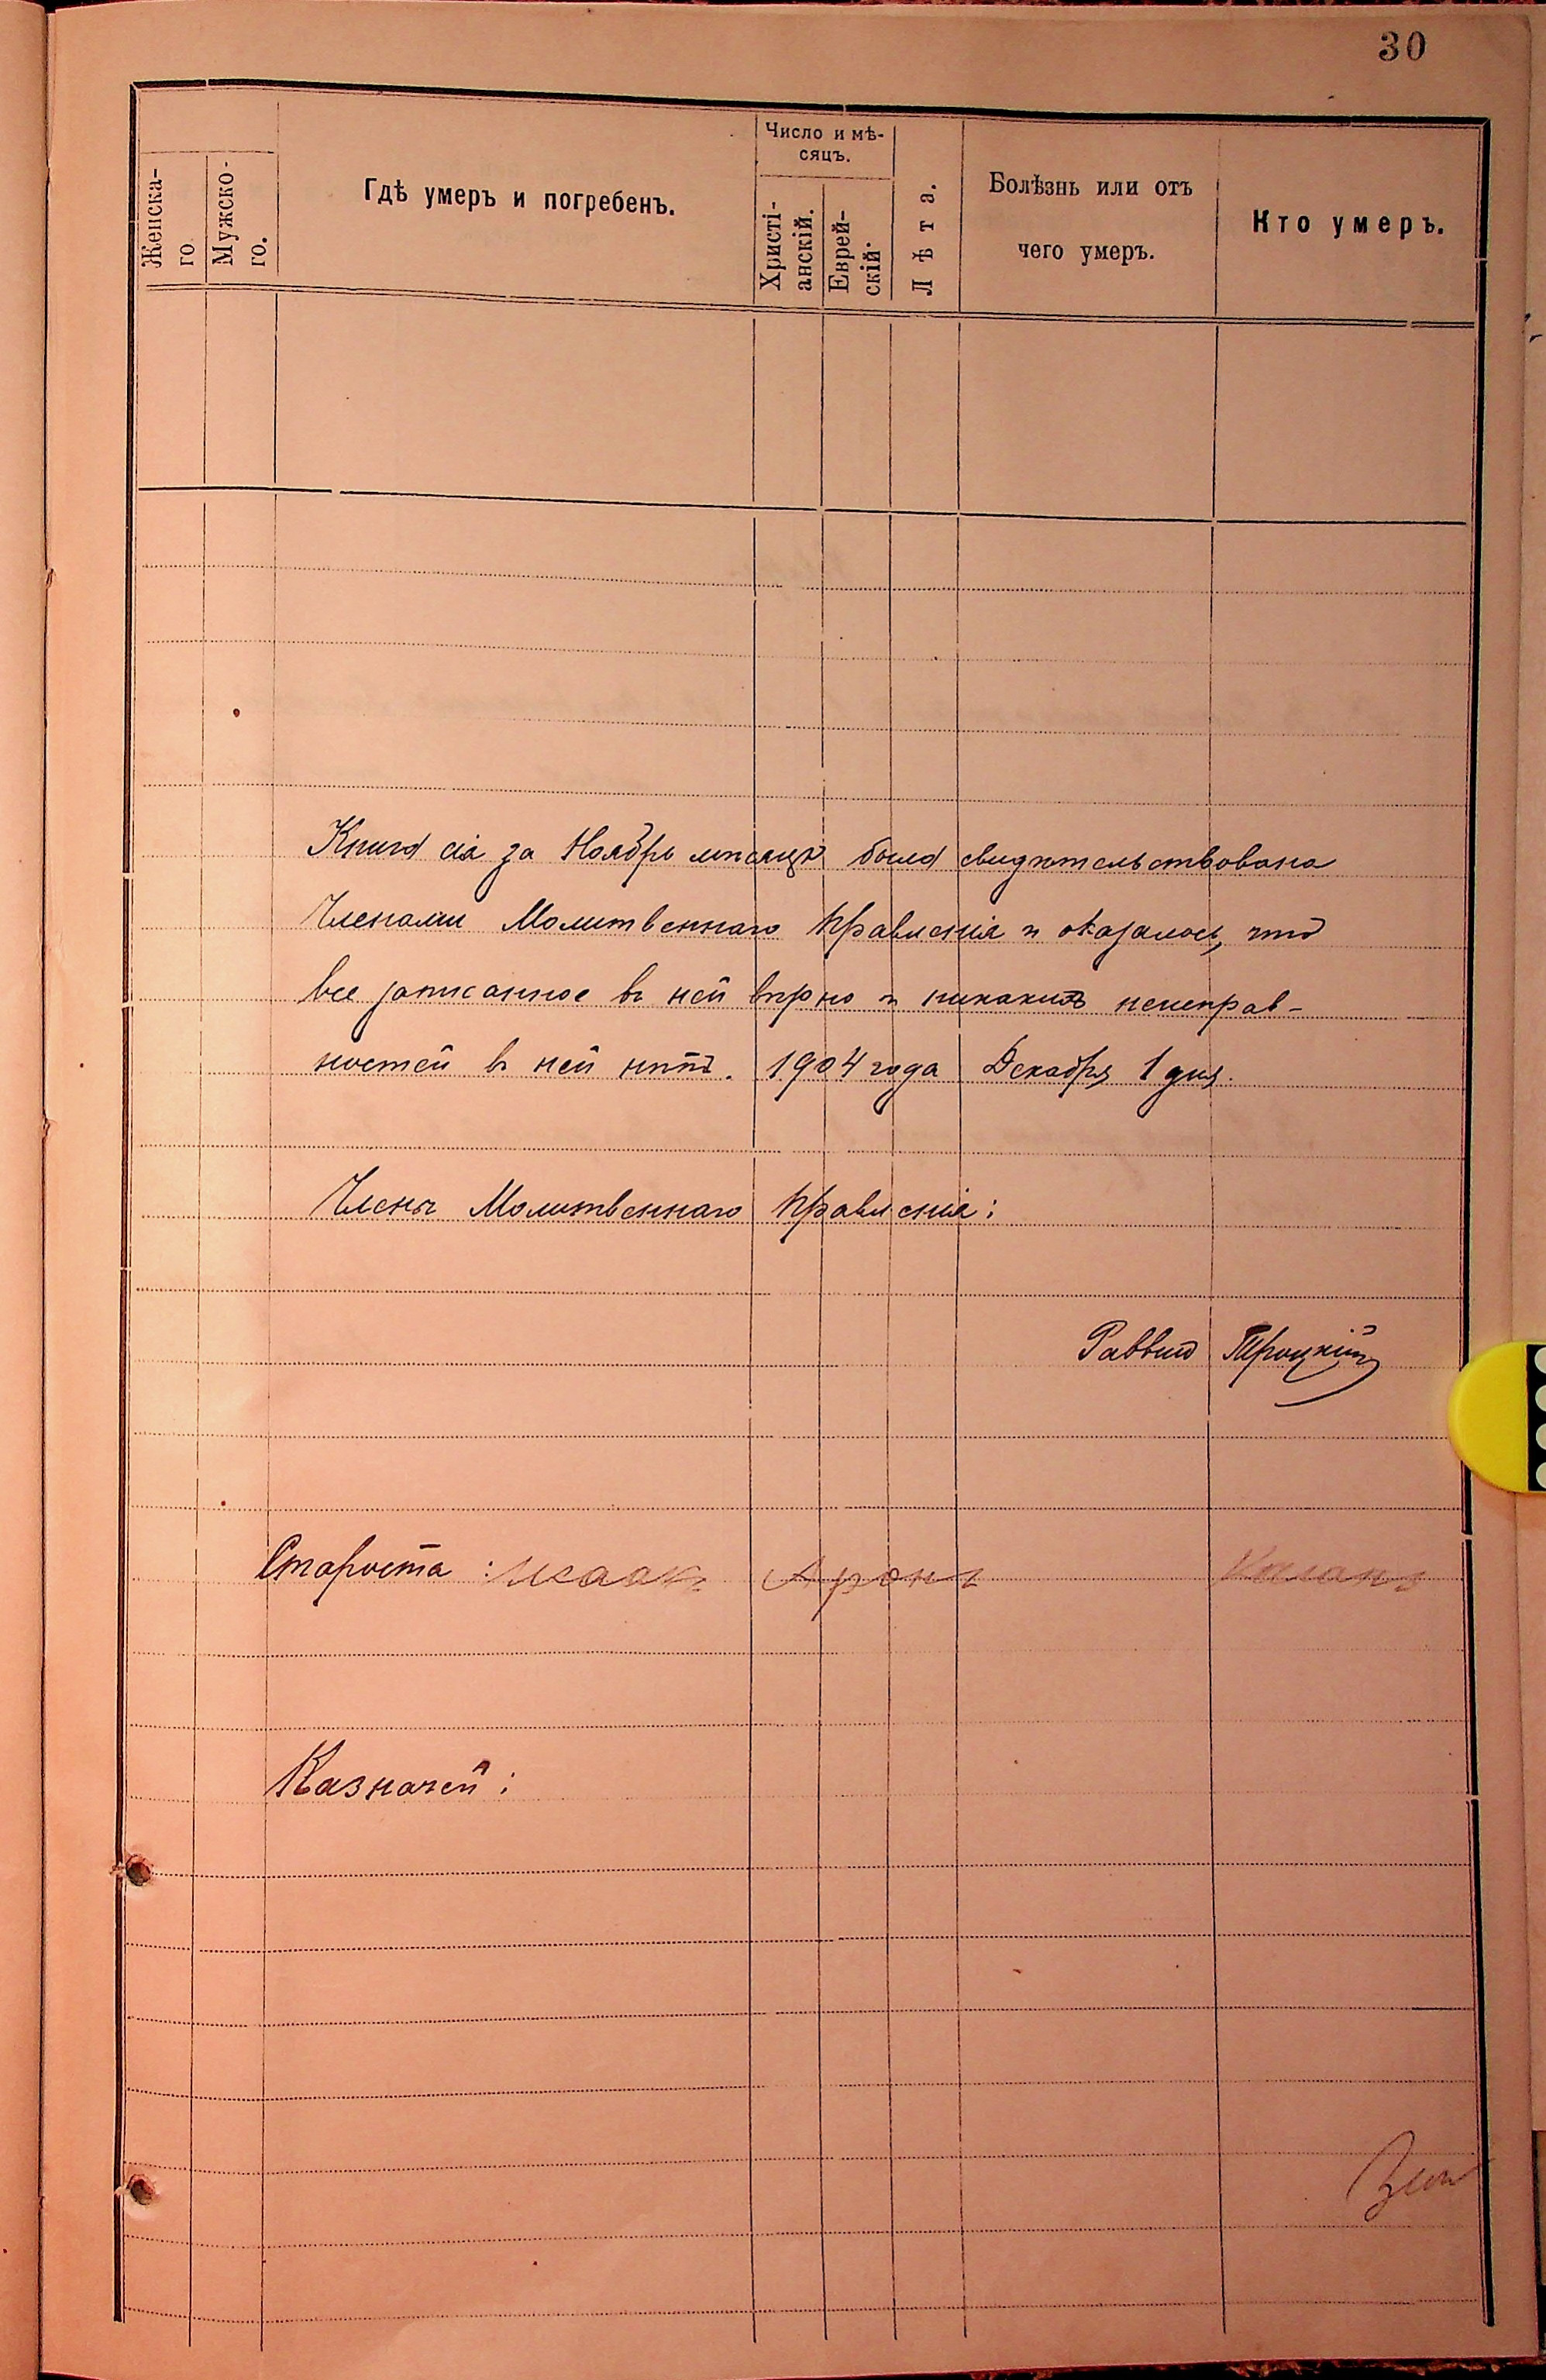 30
Женска-
го
Мужско-
го.
Гдѣ умеръ и погребенъ.
Число и мѣ-
сяцъ.
Христі-
анскій.
Еврей-
скій.
Лѣта.
Болѣзнь или отъ
чего умеръ.
Кто умеръ.
Книга сія за Ноябрь мѣсяцъ была свидѣтельствована
Членами Молитвеннаго Правленія и оказалось, что
все записанное въ ней вѣрно и никакихъ неисправ-
ностей въ ней нѣтъ. 1904 года Декабря 1 дня.
Члены Молитвеннаго Правленія:
Раввинъ Троцкій
Староста: Исаакъ Аронъ
Казначей: